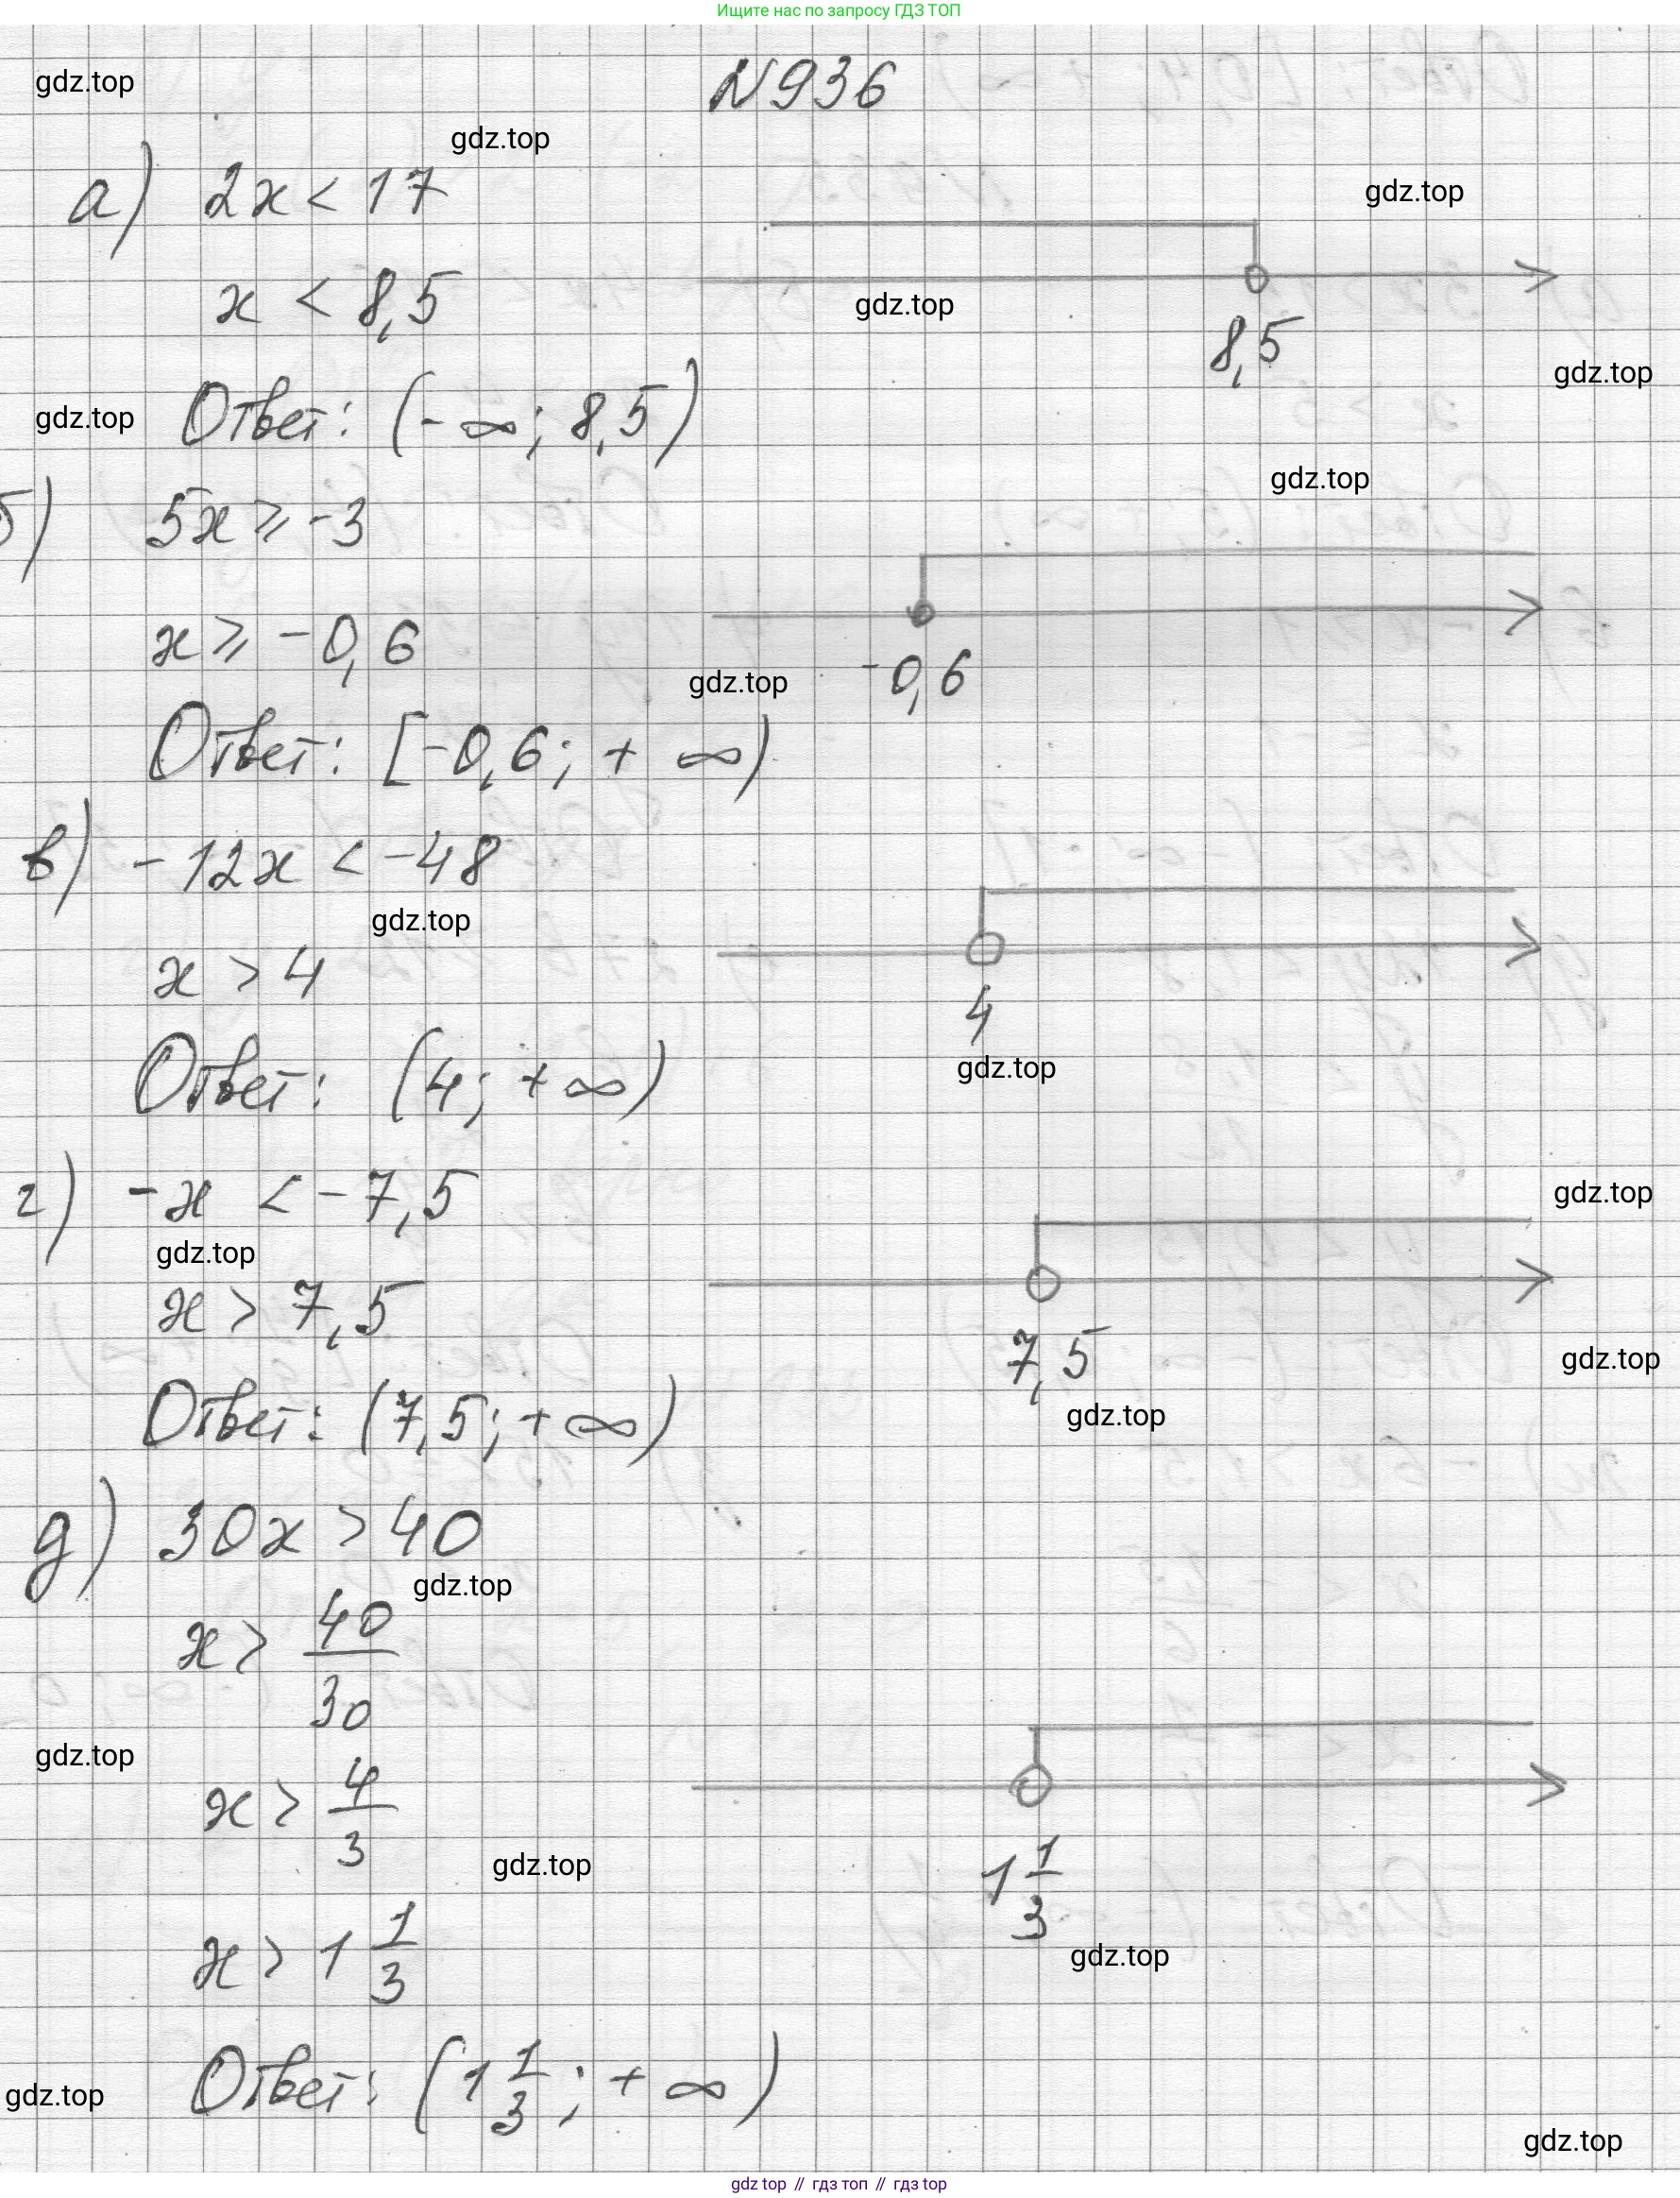 Ищите нас по запросу ГДЗ ТОП
N 936
gdz.top
gdz.top
а) 2x < 17
gdz.top
x < 8,5
gdz.top
8,5
gdz.top
gdz.top
Ответ: (-∞; 8,5)
gdz.top
б) 5x ⩾ -3
x ⩾ -0,6
gdz.top
-0,6
Ответ: [-0,6; +∞)
в) -12x < -48
gdz.top
x > 4
4
gdz.top
Ответ: (4; +∞)
г) -x < -7,5
gdz.top
gdz.top
x > 7,5
7,5
gdz.top
gdz.top
Ответ: (7,5; +∞)
д) 30x > 40
gdz.top
x > 40/30
gdz.top
x > 4/3
gdz.top
1 1/3
x > 1 1/3
gdz.top
Ответ: (1 1/3; +∞)
gdz.top
gdz.top
gdz top // гдз топ // гдз top